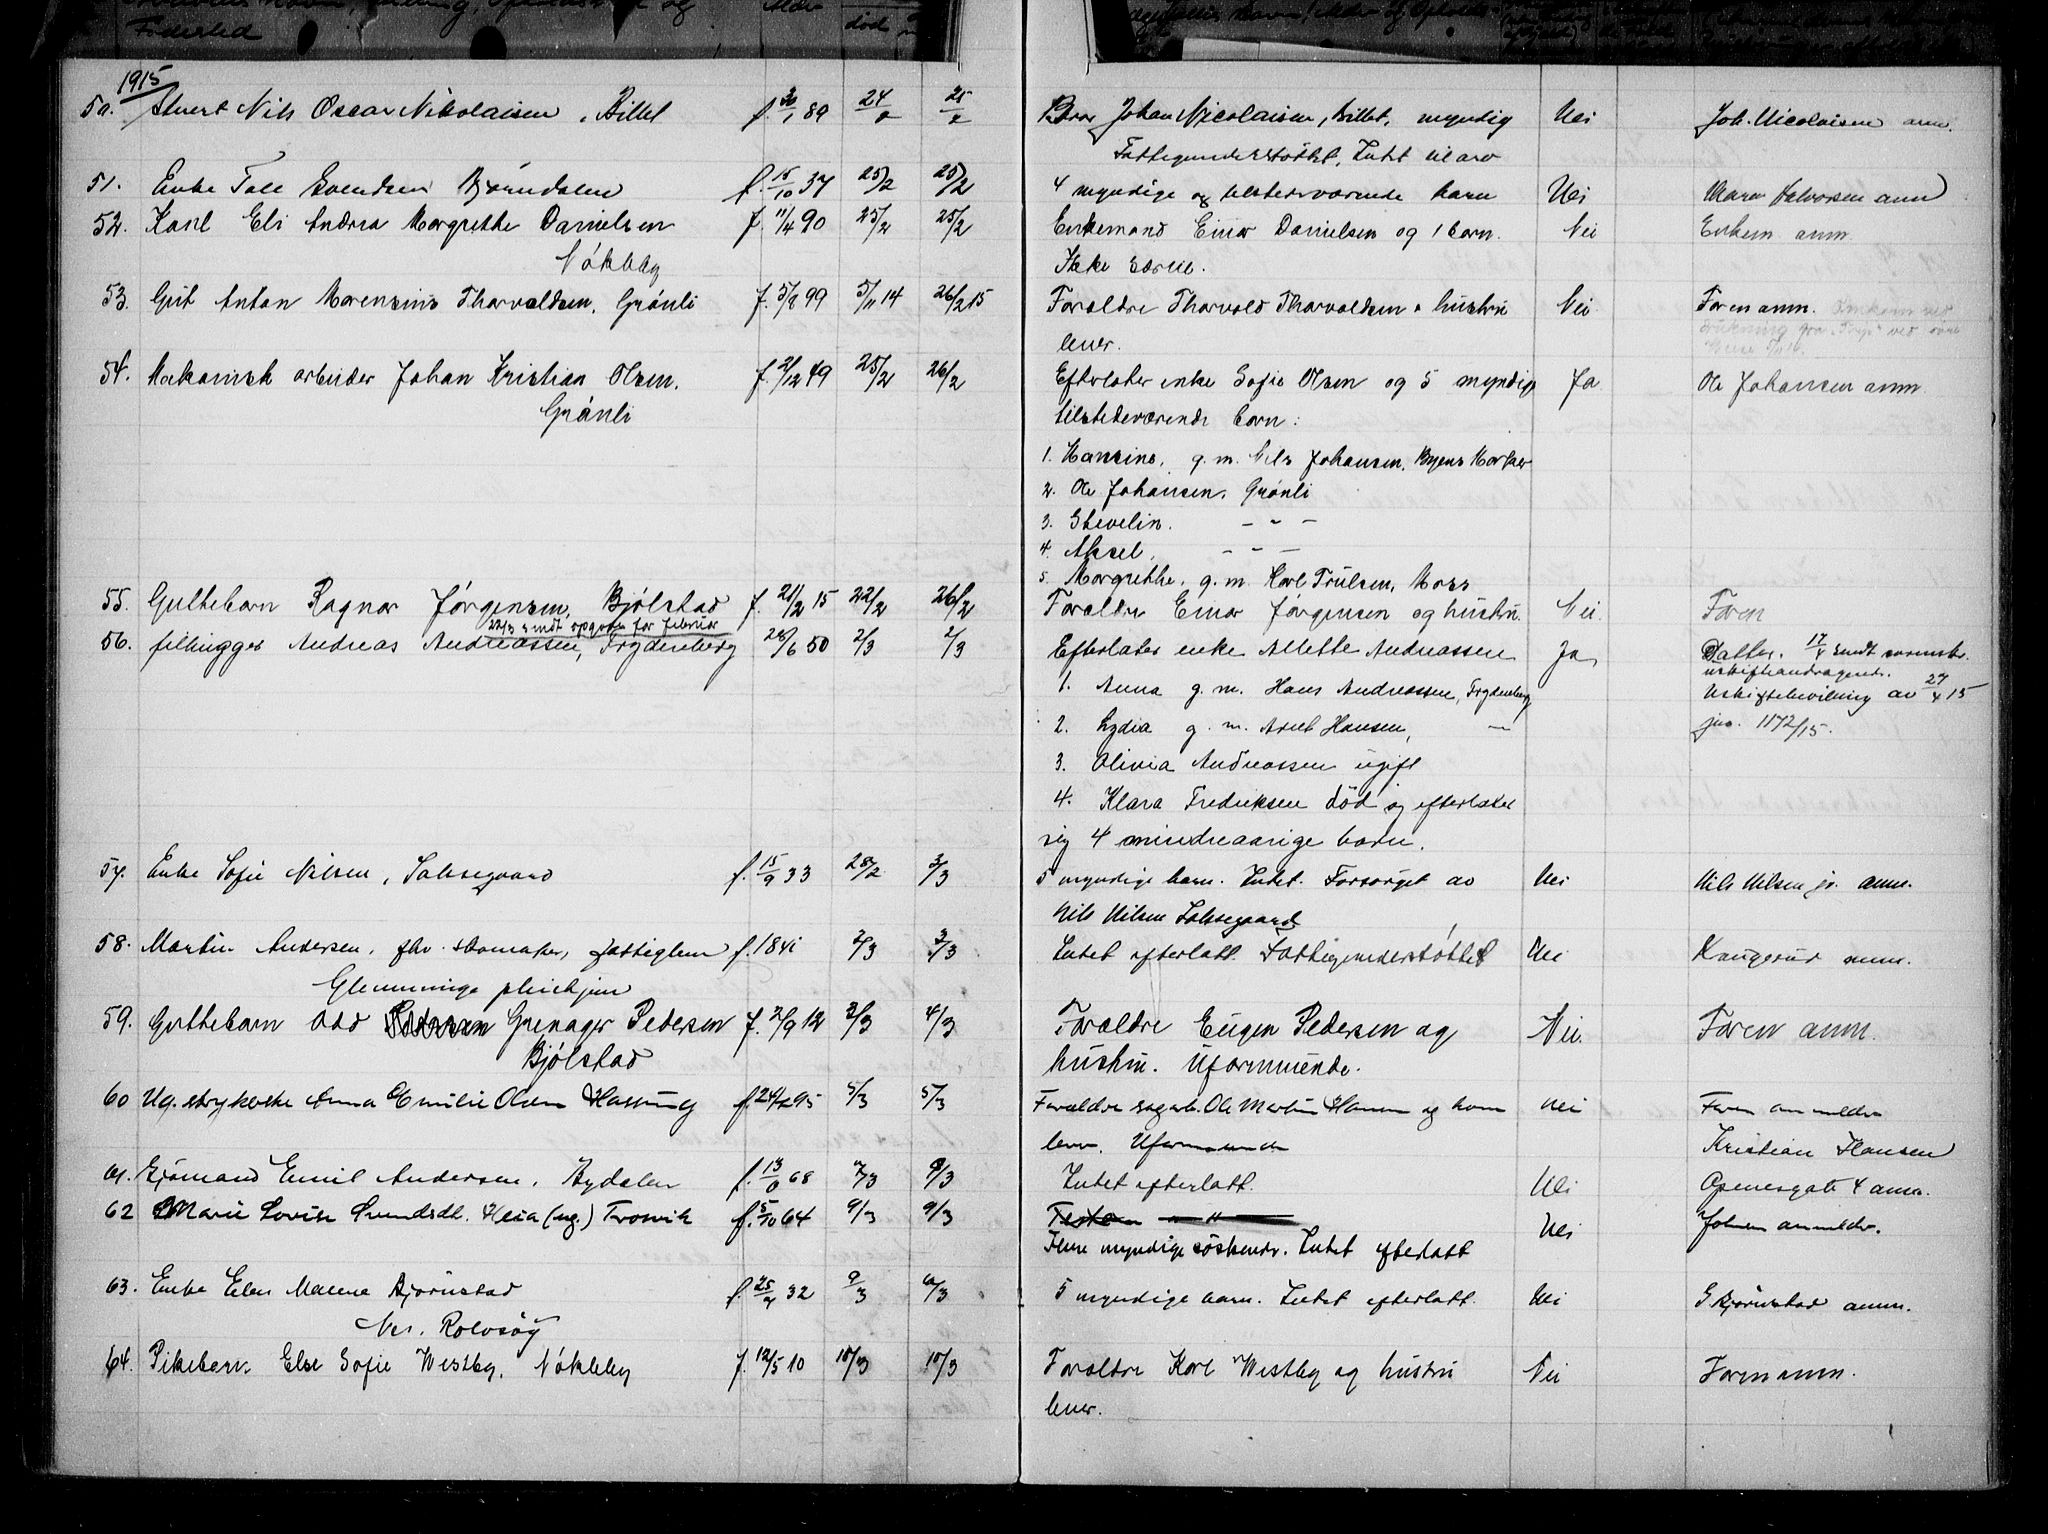 1915
50. Stuert Nils Oscar Nikolaisen, Billet f. 30/1 89 24/2 25/2 Bror Johan Nicolaisen, Billet, myndig Nei Joh. Nicolaisen anm.
Fattigunderstøttet, Intet til arv
51. Enke Tale Svendsen Bjørndalen f. 15/10 37 25/2 25/2 4 myndige og tilstedeværende barn Nei Maren Halvorsen anm
52. Kone Eli Andrea Margrethe Danielsen f. 11/4 90 25/2 25/2 Enkemand Einar Danielsen og 1 barn. Nei Enkem anm.
Nökleby Ikke særeie.
53. Gut Anton Marensius Tharvaldsen, Grönli f. 5/8 99 5/11 14 26/2 15 Foræidre Tharvald Tharvaldsen o hustru Nei Faren anm.
lever.
54. Mekanisk arbeider Johan Kristian Olsen. f. 21/12 49 25/2 26/2 Efterlater enke Sofie Olsen og 5 myndige Ja Ole Johansen anm.
Grönli tilstedeværende barn:
1. Hansine, g.m. Nils Johansen, Byens Marker
2. Ole Johansen, Grönli
3. Stevelin. - " -
4. Aksel. - " -
5. Margrethe. g.m. Karl Trulsen, Moss
55. Guttebarn Ragnar Jörgensen, Bjölstad f. 21/2 15 22/2 26/2 Forældre Einar Jörgensen og hustru. Nei. Faren
22/3 sendt opgaven for februar
56. filhugger Andreas Andreassen, Frydenberg 28/6 50 2/3 2/3 Efterlater enke Alette Andreassen Ja Datter. 17/4 sendt
1. Anna g.m. Hans Andreassen, Frydenberg uskifteandragende.
Uskiftebevilling av 27/4 15
2. Lydia g.m. Hansen, — jnr. 1172/15.
3. Olivia Andreassen ugift
4. Klara Fredriksen død og efterlatt
sig 4 mindreaarige barn.
57. Enke Sofie Nilsen, Saksegaard f. 15/9 33 28/2 3/3 5 myndige barn. Intet. Forsørget av Nei Nils Nilsen jr. anm.
Nils Nilsen Saksegaard
58. Martin Andersen, fhv. skomaker, fattiglem f. 1841 2/3 3/3 Intet efterlatt. Fattigunderstøttet Nei Haugerud anm.
Glemminge pleiehjem
59. Guttebarn Odd Grenager Pedersen f. 2/9 12 2/3 4/3 Forældre Eugen Pedersen og Nei. Faren anm.
Bjölstad hustru. Uformuende.
60 Ug. strykerske Anna Emilie Olsen Hassing f. 24/2 95 5/3 5/3 Forældre sagarb. Ole Martin Hansen og kone Nei Faren anmelder
lever. Uformuende Kristian Hansen
61. Sjömand Emil Andersen, Bydalen f. 13/6 68 7/3 9/3 Intet efterlatt. Nei Apenesgate 4 anm.
62 Marie Lovise Svendsdt. Heia (ug.) Trosvik f. 5/10 64 9/3 9/3 Nei Johnsen anmelder.
Flere myndige söskende. Intet efterlatt
63. Enke Elen Malene Bjørnstad f. 25/4 32 9/3 10/3 5 myndige barn. Intet efterlatt. Nei S Bjørnstad anm.
Nes. Rolvsøy
64. Pikebarn Else Sofie Westby, Nökleby f. 12/5 10 10/3 10/3 Forældre Karl Westby og hustru Nei Faren anm.
lever.